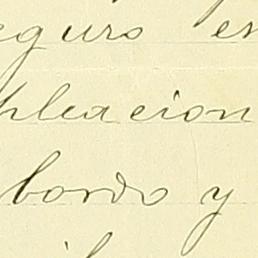 eguro en
pleacion
bordo y